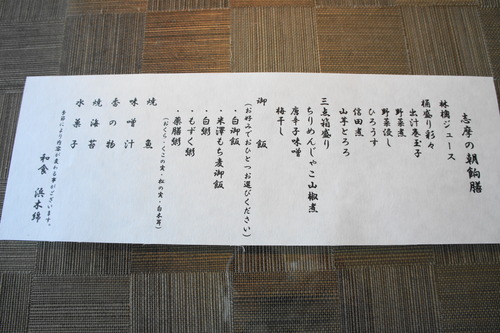 志摩の朝餉膳
林檎ジュース
桶盛り彩々
出汁巻玉子
野菜煮
野菜浸し
ひろうす
信田煮
山芋とろろ
三点箱盛り
ちりめんじゃこ山椒煮
唐辛子味噌
梅干し
御飯
(お好みでおひとつお選びください)
・白御飯
・米澤もち麦御飯
・白粥
・もずく粥
・薬膳粥
(おくら・くこの実・松の実・白木耳)
焼魚
味噌汁
香の物
焼海苔
水菓子
季節により内容が変わる事がございます。
和食 浜木綿